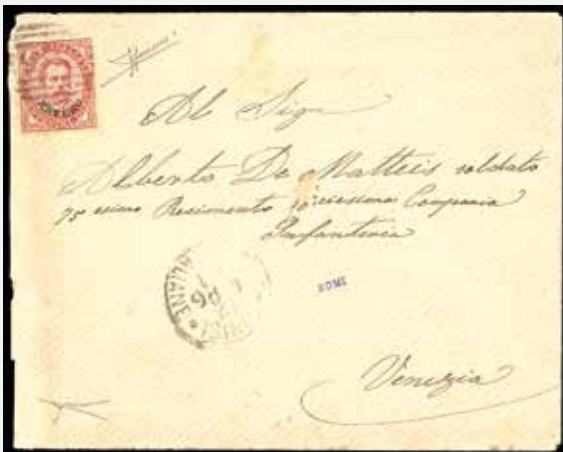 Al Sigr
Alberto De Matteis soldato
75 esimo Recimento 10 Compania
Infanteria
ROMI
Venezia